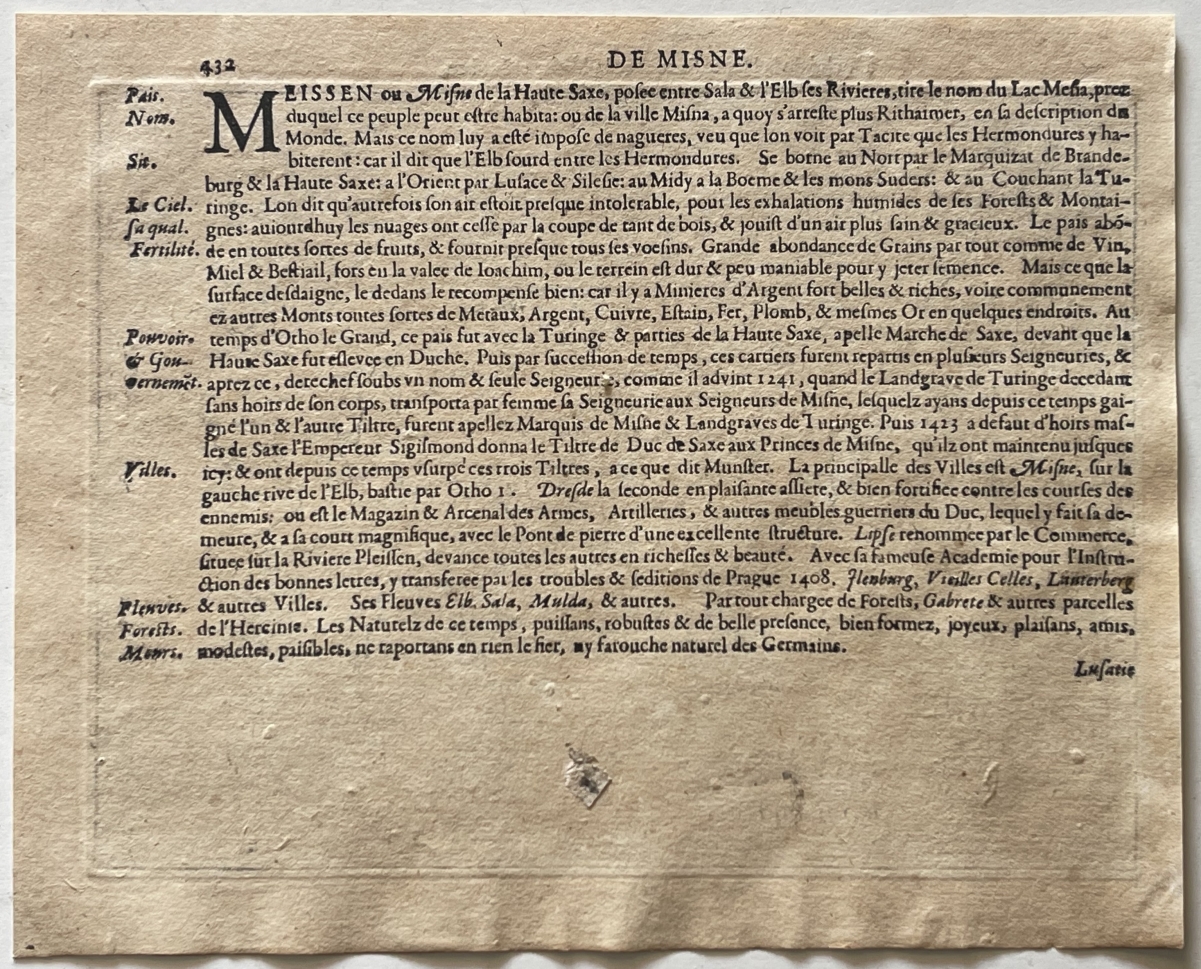 432 DE MISNE.
Païs. MEISSEN ou Misne de la Haute Saxe, posee entre Sala & l'Elb ses Rivieres, tire le nom du Lac Mesia, prez
Nom. duquel ce peuple peut estre habita: ou de la ville Misna, a quoy s'arreste plus Rithaimer, en sa description du
Monde. Mais ce nom luy a esté impose de nagueres, veu que lon voit par Tacite que les Hermondures y ha-
Sit. biterent: car il dit que l'Elb sourd entre les Hermondures. Se borne au Nort par le Marquizat de Brande-
burg & la Haute Saxe: a l'Orient par Lusace & Silesie: au Midy a la Boeme & les mons Suders: & au Couchant la Tu-
Le Ciel. ringe. Lon dit qu'autrefois son air estoit presque intolerable, pour les exhalations humides de ses Forests & Montai-
sa qual. gnes: auiourdhuy les nuages ont cessé par la coupe de tant de bois, & jouist d'un air plus sain & gracieux. Le païs abõ-
Fertilité. de en toutes sortes de fruits, & fournit presque tous ses voesins. Grande abondance de Grains par tout comme de Vin,
Miel & Bestiail, fors en la valee de Ioachim, ou le terrein est dur & peu maniable pour y jeter semence. Mais ce que la
surface desdaigne, le dedans le recompense bien: car il y a Minieres d'Argent fort belles & riches, voire communement
ez autres Monts toutes sortes de Metaux; Argent, Cuivre, Estain, Fer, Plomb, & mesmes Or en quelques endroits. Au
Pouvoir. temps d'Otho le Grand, ce païs fut avec la Turinge & parties de la Haute Saxe, apelle Marche de Saxe, devant que la
& Gou- Haute Saxe fut eslevee en Duché. Puis par succession de temps, ces cartiers furent repartis en plusieurs Seigneuries, &
vernemẽt. aprez ce, derechef soubs vn nom & seule Seigneurie, comme il advint 1241, quand le Landgrave de Turinge decedant
sans hoirs de son corps, transporta par femme sa Seigneurie aux Seigneurs de Misne, lesquelz ayans depuis ce temps gai-
gné l'un & l'autre Tiltre, furent apellez Marquis de Misne & Landgraves de Turinge. Puis 1423 a defaut d'hoirs mas-
les de Saxe l'Empereur Sigismond donna le Tiltre de Duc de Saxe aux Princes de Misne, qu'ilz ont maintenu jusques
Villes. icy: & ont depuis ce temps vsurpé ces trois Tiltres, a ce que dit Munster. La principalle des Villes est Misne, sur la
gauche rive de l'Elb, bastie par Otho 1. Dresde la seconde en plaisante assiete, & bien fortifiee contre les courses des
ennemis: ou est le Magazin & Arcenal des Armes, Artilleries, & autres meubles guerriers du Duc, lequel y fait sa de-
meure, & a sa court magnifique, avec le Pont de pierre d'une excellente structure. Lipse renommee par le Commerce,
situee sur la Riviere Pleissen, devance toutes les autres en richesses & beauté. Avec sa fameuse Academie pour l'Instru-
ction des bonnes letres, y transferee par les troubles & seditions de Prague 1408. Ilenburg, Vieilles Celles, Lauterberg
Fleuves. & autres Villes. Ses Fleuves Elb, Sala, Mulda, & autres. Par tout chargee de Forests, Gabrete & autres parcelles
Forests. de l'Hercinie. Les Naturelz de ce temps, puissans, robustes & de belle presence, bien formez, joyeux, plaisans, amis,
Meurs. modestes, paisibles, ne raportans en rien le fier, ny farouche naturel des Germains.
Lusatie